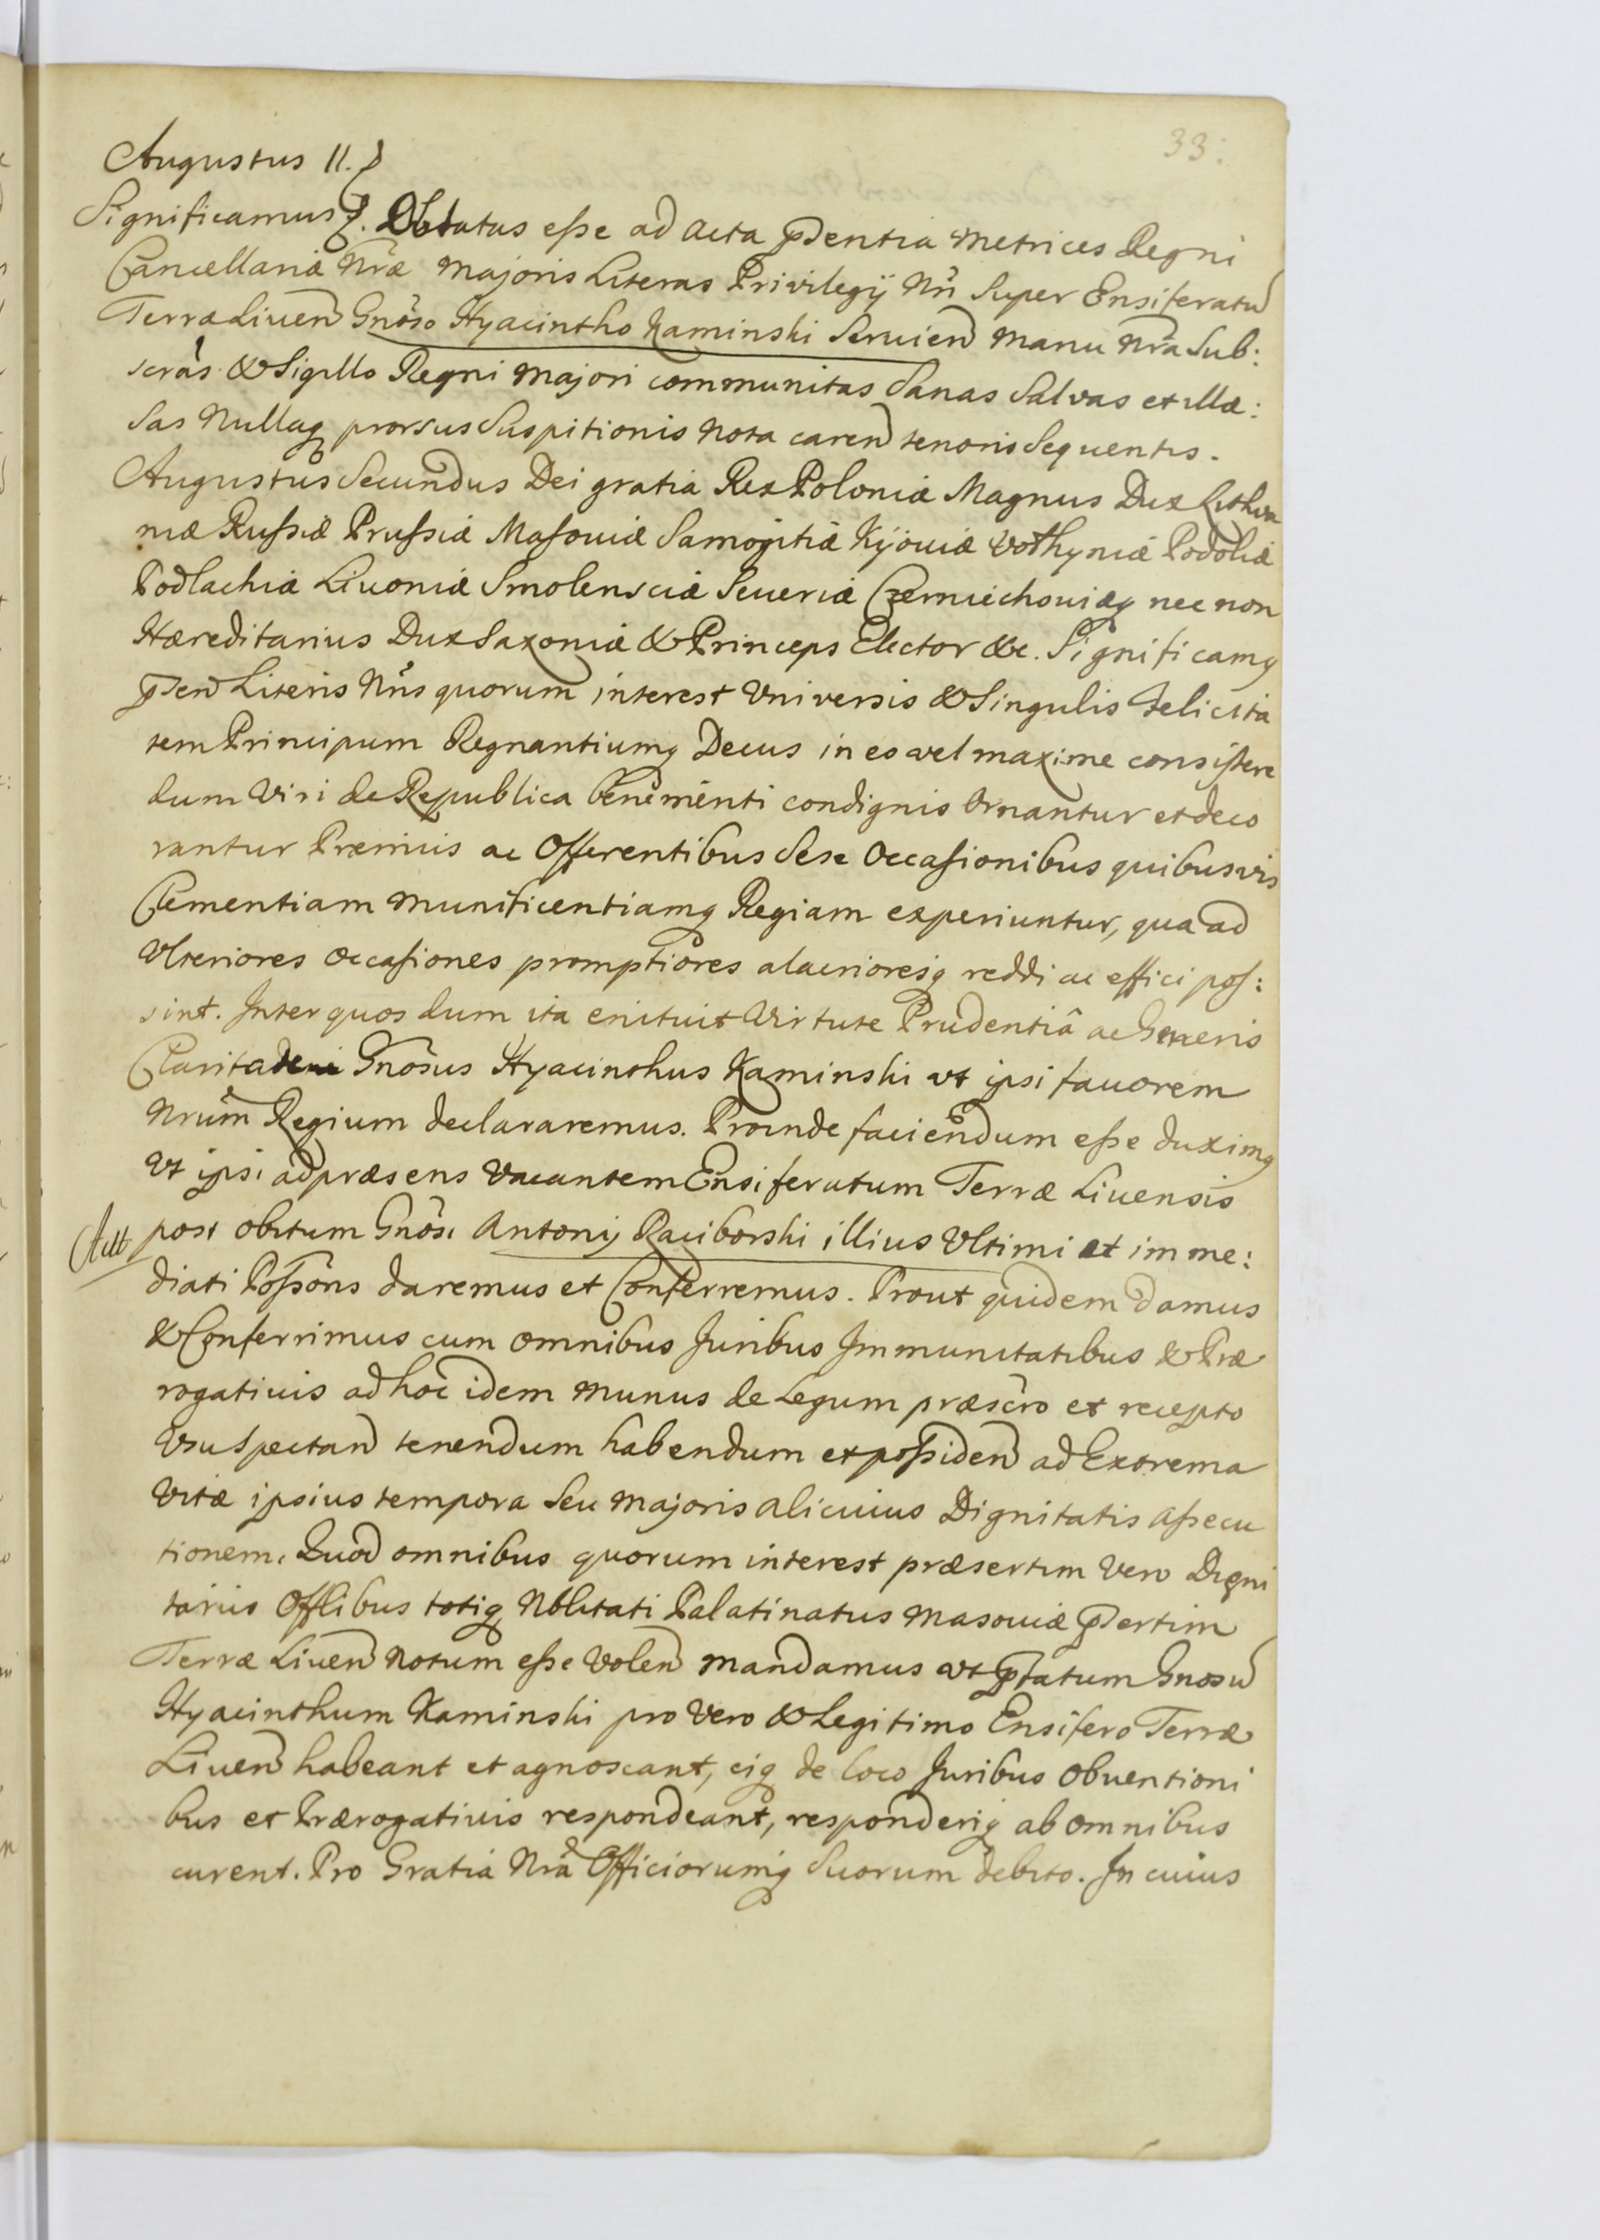 33:
Augustus II.
Significamus. Oblatas esse ad acta pdentia Metrices Regni
Cancellariæ Nræ Majoris Literas Privilegÿ Nri Super Ensiferatu
Terræ Liven Gnoso Hyacintho Kaminski Servien manu Nra Sub:
scras & Sigillo Regni Majori communitas Sanas Salvas et illæ:
sas Nullaq prorsus Suspitionis Nota caren tenoris Sequentis.
Augustus Secundus Dei gratia Rex Poloniæ Magnus Dux Lithva
niæ Russiæ Prussiæ Masoviæ Samogitiæ Kÿoviæ Volhyniæ Podoliæ
Podlachiæ Livoniæ Smolensciæ Severiæ Czerniechoviæq nec non
Hæreditarius Dux Saxoniæ & Princeps Elector &c. Significamq
pden Literis Nris quorum interest Universis & Singulis Felicita
tem Principum Regnantiumq Decus in eo vel maxime consistere
dum Viri de Republica benementi condignis Ornantur et deco
rantur Præmiis ac Offerentibus Sese Occasionibus quibusvis
Clementiam Munificentiamq Regiam experiuntur, qua ad
Ulteriores Occasiones promptiores alacrioresq reddi ac effici pos:
sint. Inter quos dum ita enituit Virtute Prudentiâ ac Generis
Claritate Gnosus Hyacinthus Kaminski ut ipsi favorem
Nrum Regium declararemus. Proinde faciendum esse duximq
Ut ipsi ad præsens Vacantem Ensiferatum Terræ Livensis
post obitum Gnosi Antonij Raciborski illius Ultimi et imme:
diati Possons daremus et Conferremus. Prout quidem damus
& Conferrimus cum omnibus Juribus Immunitatibus & Præ
rogativis ad hoc idem Munus de Legum præscro et recepto
Usu Spectan tenendum habendum et possiden ad Extrema
Vitæ ipsius tempora Seu Majoris alicuius Dignitatis assecu
tionem. Quod omnibus quorum interest præsertim Vero Digni
tariis Offlibus totiq Nblitati Palatinatus Masoviæ psertim
Terræ Liven Notum esse Volen mandamus ut pfatum Gnosu
Hyacinthum Kaminski pro Vero & Legitimo Ensifero Terræ
Liven habeant et agnoscant, eiq de loco Juribus Obventioni
bus et Prærogativis respondeant, responderiq ab omnibus
curent. Pro Gratia Nra Officiorumq Suorum debito. In cuius